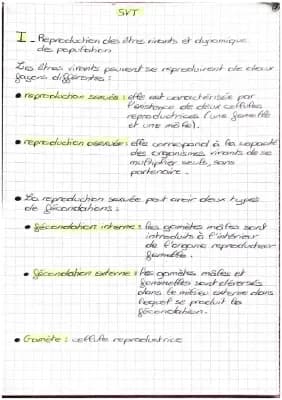 SVT
I - Reproduction des êtres vivants et dynamique
des population
Les êtres vivants peuvent se reproduirent de deux
façons différentes :
• reproduction sexuée : elle est caractérisée par
l'existence de deux cellules
reproductrices (une femelle
et une mâle).
• reproduction asexuée : elle correspond à la capacité
des organismes vivants de se
multiplier seuls, sans
partenaire.
• La reproduction sexuée peut avoir deux types
de fécondations :
• fécondation interne : les gamètes mâles sont
introduits à l'intérieur
de l'organe reproducteur
femelle.
• fécondation externe : les gamètes mâles et
femelles sont déversés
dans le milieu externe dans
lequel se produit la
fécondation.
• Gamète : cellule reproductrice